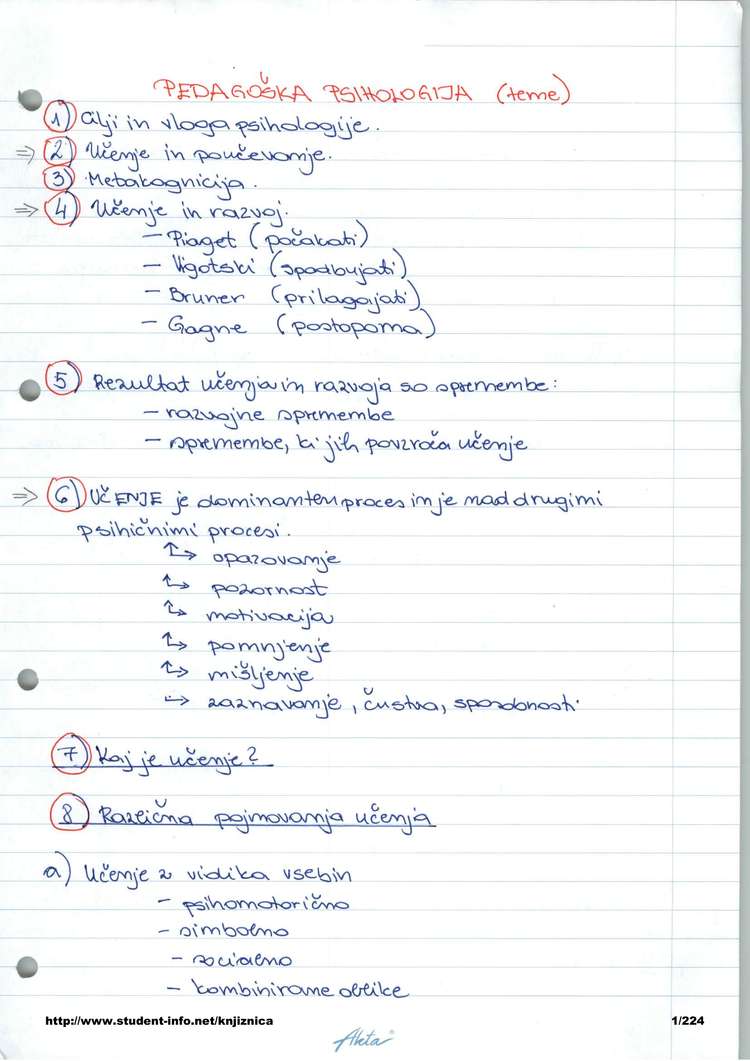 PEDAGOŠKA PSIHOLOGIJA (teme)
1) Cilji in vloga psihologije.
⇒ 2) Učenje in poučevanje.
3) Metakognicija.
⇒ 4) Učenje in razvoj.
– Piaget (počakati)
– Vigotski (spodbujati)
– Bruner (prilagajati)
– Gagne (postopoma)
5) Rezultat učenja in razvoja so spremembe:
– razvojne spremembe
– spremembe, ki jih povzroča učenje
⇒ 6) UČENJE je dominanten proces in je nad drugimi
psihičnimi procesi.
↳ opazovanje
↳ pozornost
↳ motivacija
↳ pomnjenje
↳ mišljenje
↳ zaznavanje, čustva, sposobnosti
7) Kaj je učenje?
8) Različna pojmovanja učenja
a) Učenje z vidika vsebin
– psihomotorično
– simbolno
– socialno
– kombinirane oblike
http://www.student-info.net/knjiznica 1/224
Aleta